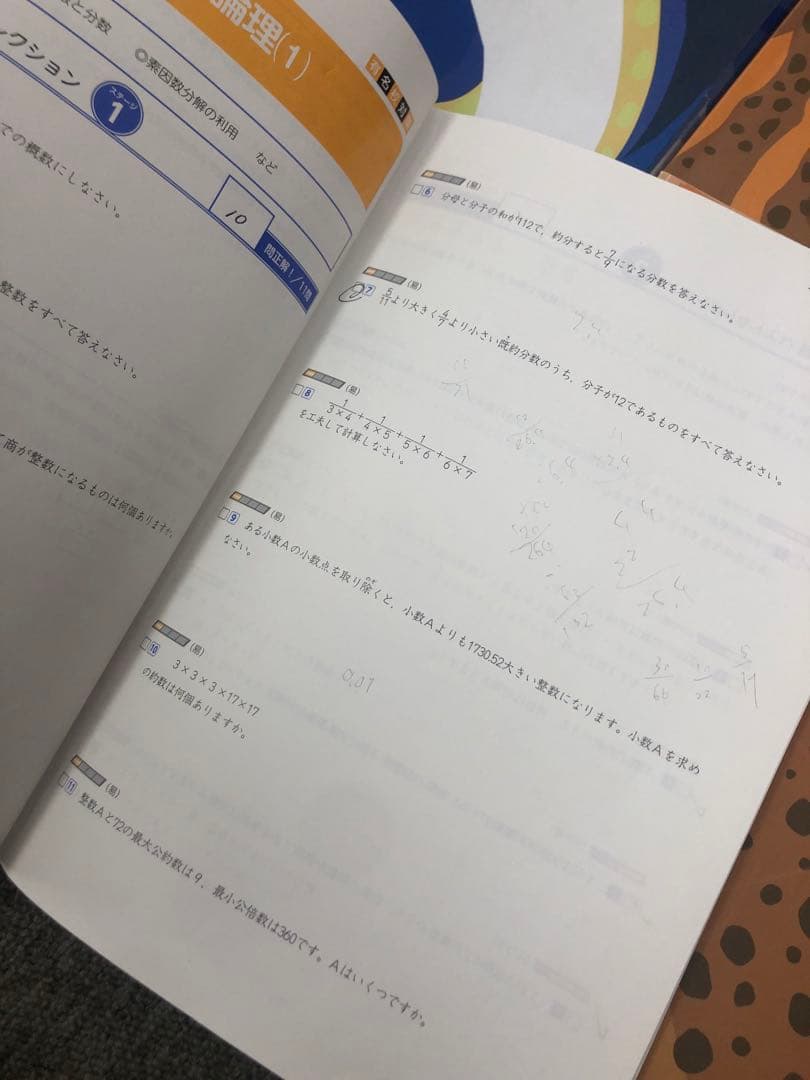 論理(1)
と分数
◎素因数分解の利用 など
クション
ステージ
1
10
問正解!/11問
での概数にしなさい。
整数をすべて答えなさい。
商が整数になるものは何個ありますか。
(易)
6 分母と分子の和が112で、約分すると7/9になる分数を答えなさい。
(易)
7 5/11より大きく4/7より小さい既約分数のうち、分子が12であるものをすべて答えなさい。
(易)
8 1/3×4+1/4×5+1/5×6+1/6×7
を工夫して計算しなさい。
(易)
9 ある小数Aの小数点を取り除くと、小数Aよりも1730.52大きい整数になります。小数Aを求め
なさい。
(易)
10 3×3×3×17×17
の約数は何個ありますか。
0.01
(易)
11 整数Aと72の最大公約数は9、最小公倍数は360です。Aはいくつですか。